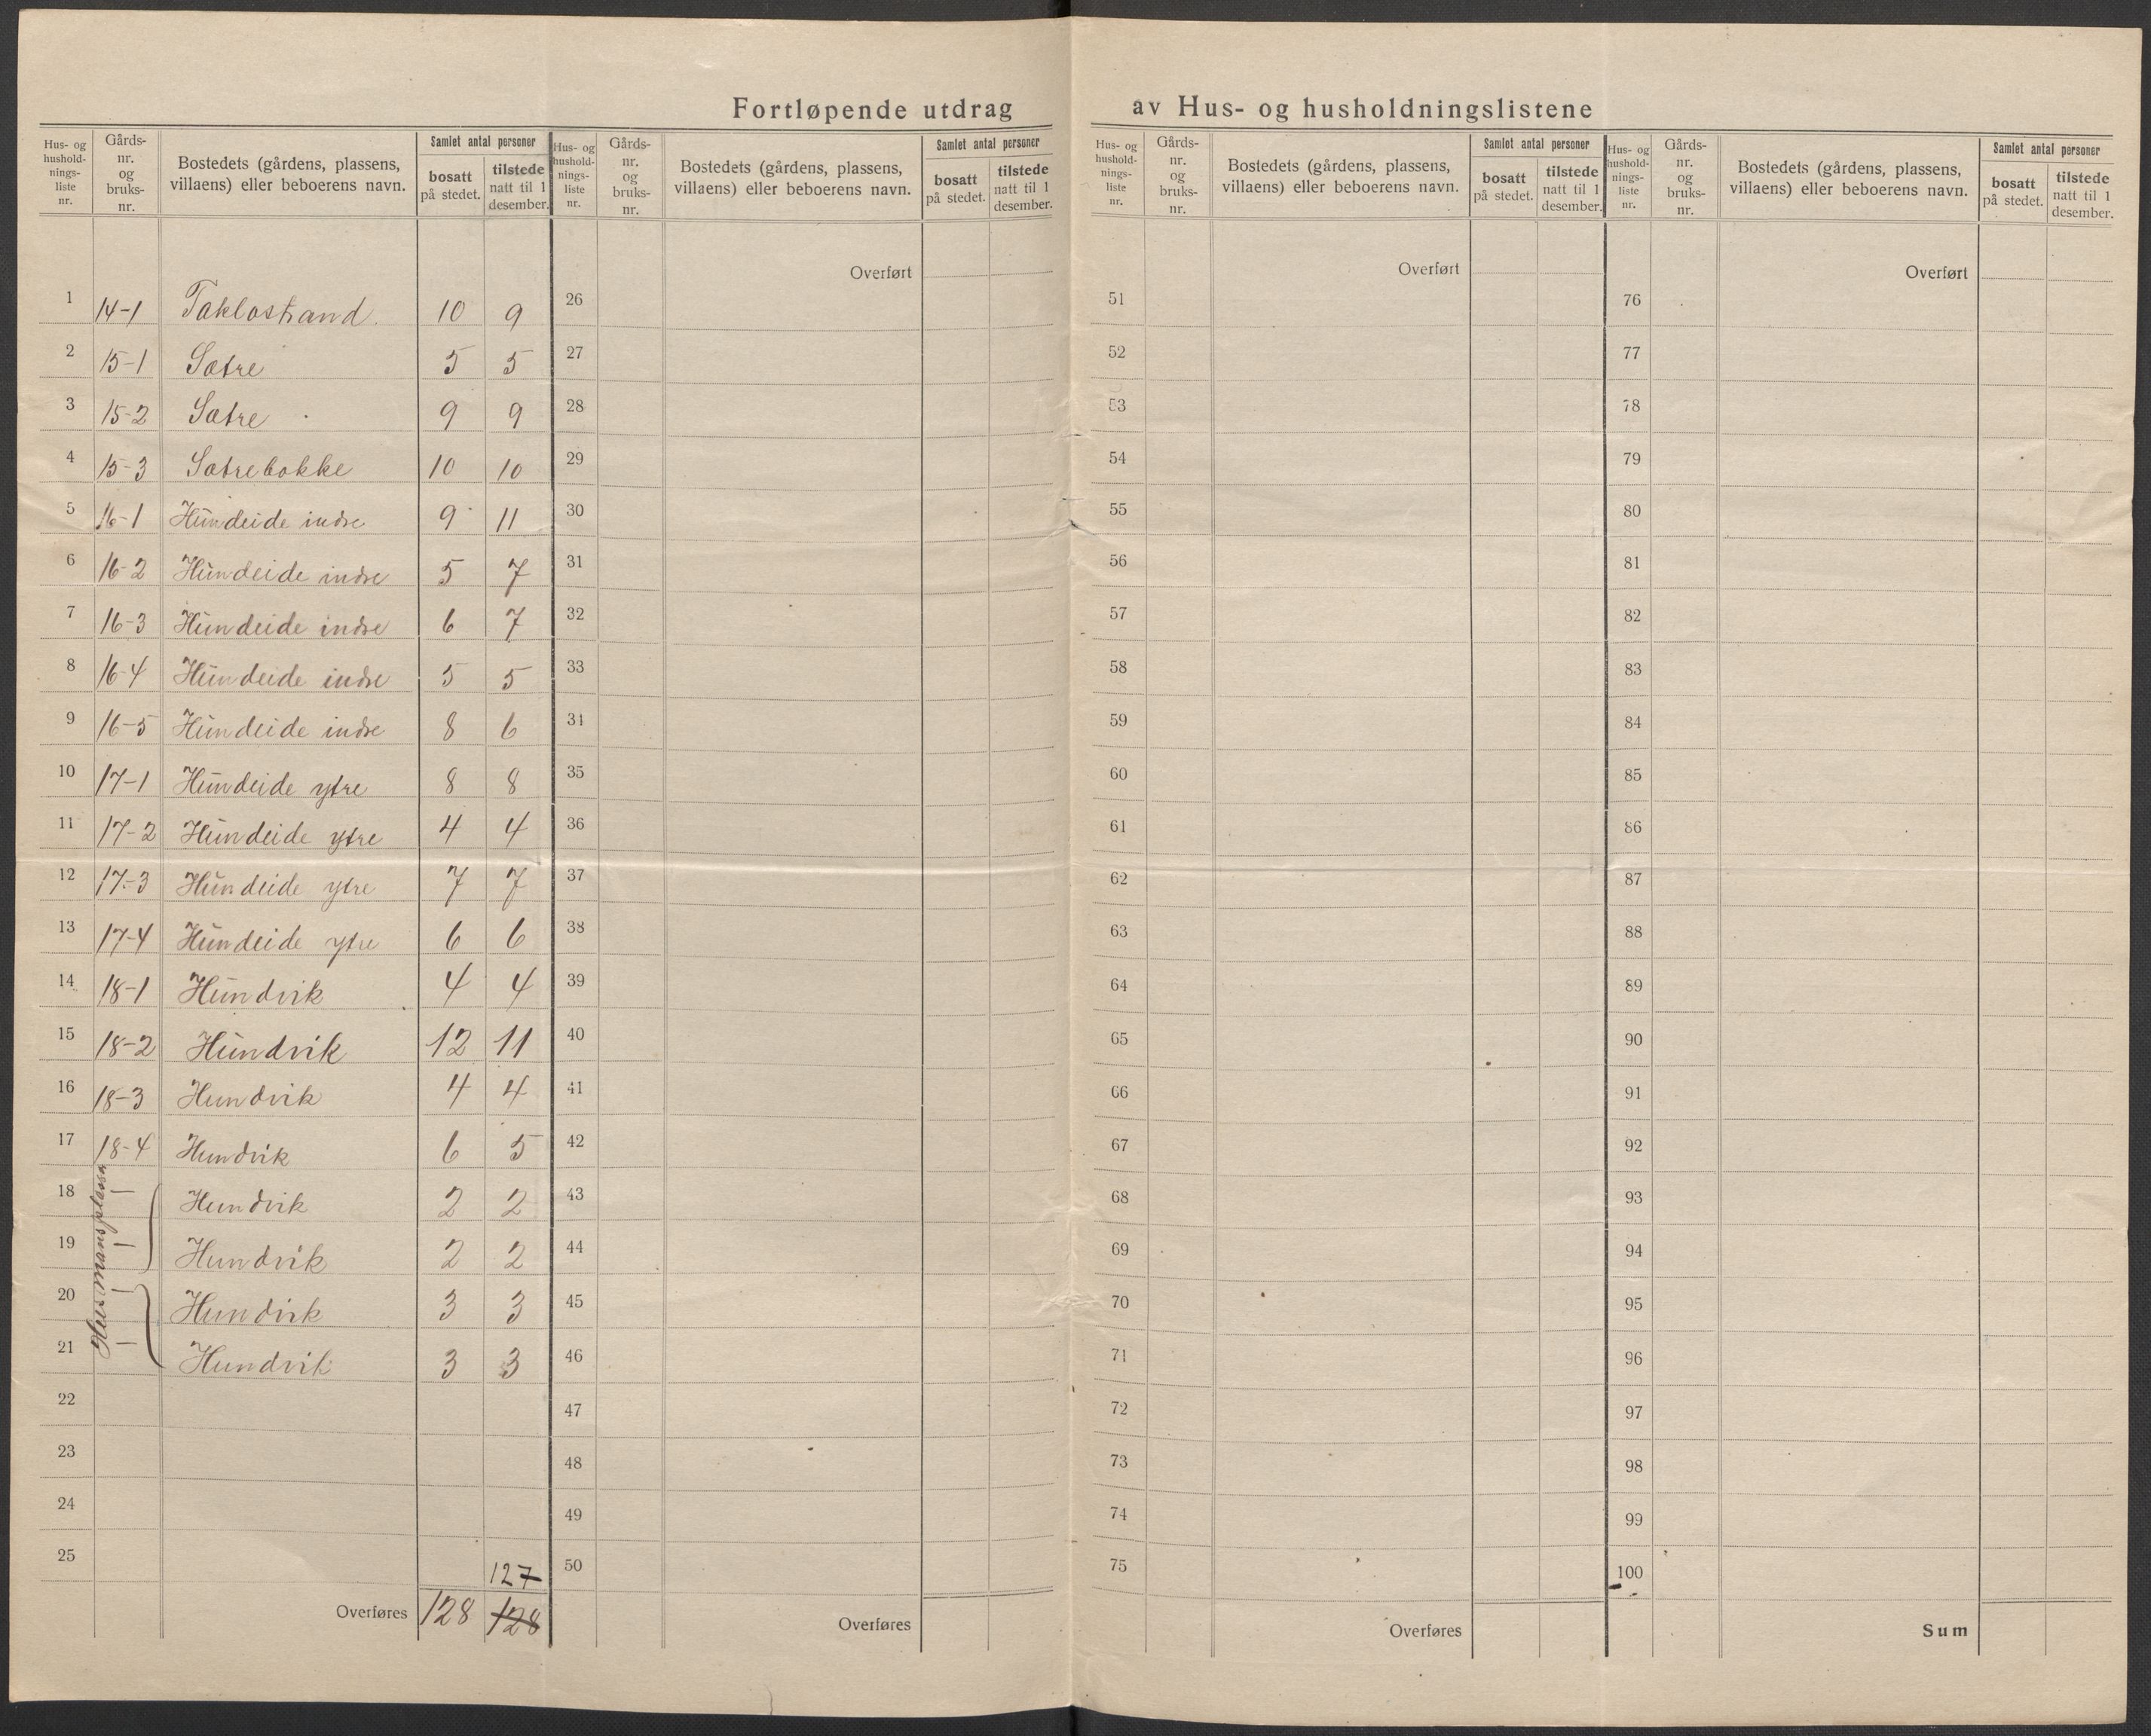 Fortløpende utdrag av Hus- og husholdningslistene
Hus- og hushold- nings- liste nr. Gårds- nr. og bruks- nr. Bostedets (gårdens, plassens, villaens) eller beboerens navn. Samlet antal personer bosatt på stedet. tilstede natt til 1 desember.
Hus- og hushold- nings- liste nr. Gårds- nr. og bruks- nr. Bostedets (gårdens, plassens, villaens) eller beboerens navn. Samlet antal personer bosatt på stedet. tilstede natt til 1 desember.
Hus- og hushold- nings- liste nr. Gårds- nr. og bruks- nr. Bostedets (gårdens, plassens, villaens) eller beboerens navn. Samlet antal personer bosatt på stedet. tilstede natt til 1 desember.
Hus- og hushold- nings- liste nr. Gårds- nr. og bruks- nr. Bostedets (gårdens, plassens, villaens) eller beboerens navn. Samlet antal personer bosatt på stedet. tilstede natt til 1 desember.
1 14-1 Taklostrand 10 9
2 15-1 Sætre 5 5
3 15-2 Sætre 9 9
4 15-3 Sætrebakke 10 10
5 16-1 Hundeide indre 9 11
6 16-2 Hundeide indre 5 7
7 16-3 Hundeide indre 6 7
8 16-4 Hundeide indre 5 5
9 16-5 Hundeide indre 8 6
10 17-1 Hundeide ytre 8 8
11 17-2 Hundeide ytre 4 4
12 17-3 Hundeide ytre 7 7
13 17-4 Hundeide ytre 6 6
14 18-1 Hundvik 4 4
15 18-2 Hundvik 12 11
16 18-3 Hundvik 4 4
17 18-4 Hundvik 6 5
18 — Hundvik 2 2
19 — Hundvik 2 2
20 — Hundvik 3 3
21 — Hundvik 3 3
22
23
24
25 127
Overføres 128 128
Overført
26
27
28
29
30
31
32
33
34
35
36
37
38
39
40
41
42
43
44
45
46
47
48
49
50
Overføres
Overført
51
52
53
54
55
56
57
58
59
60
61
62
63
64
65
66
67
68
69
70
71
72
73
74
75
Overføres
Overført
76
77
78
79
80
81
82
83
84
85
86
87
88
89
90
91
92
93
94
95
96
97
98
99
100
Sum